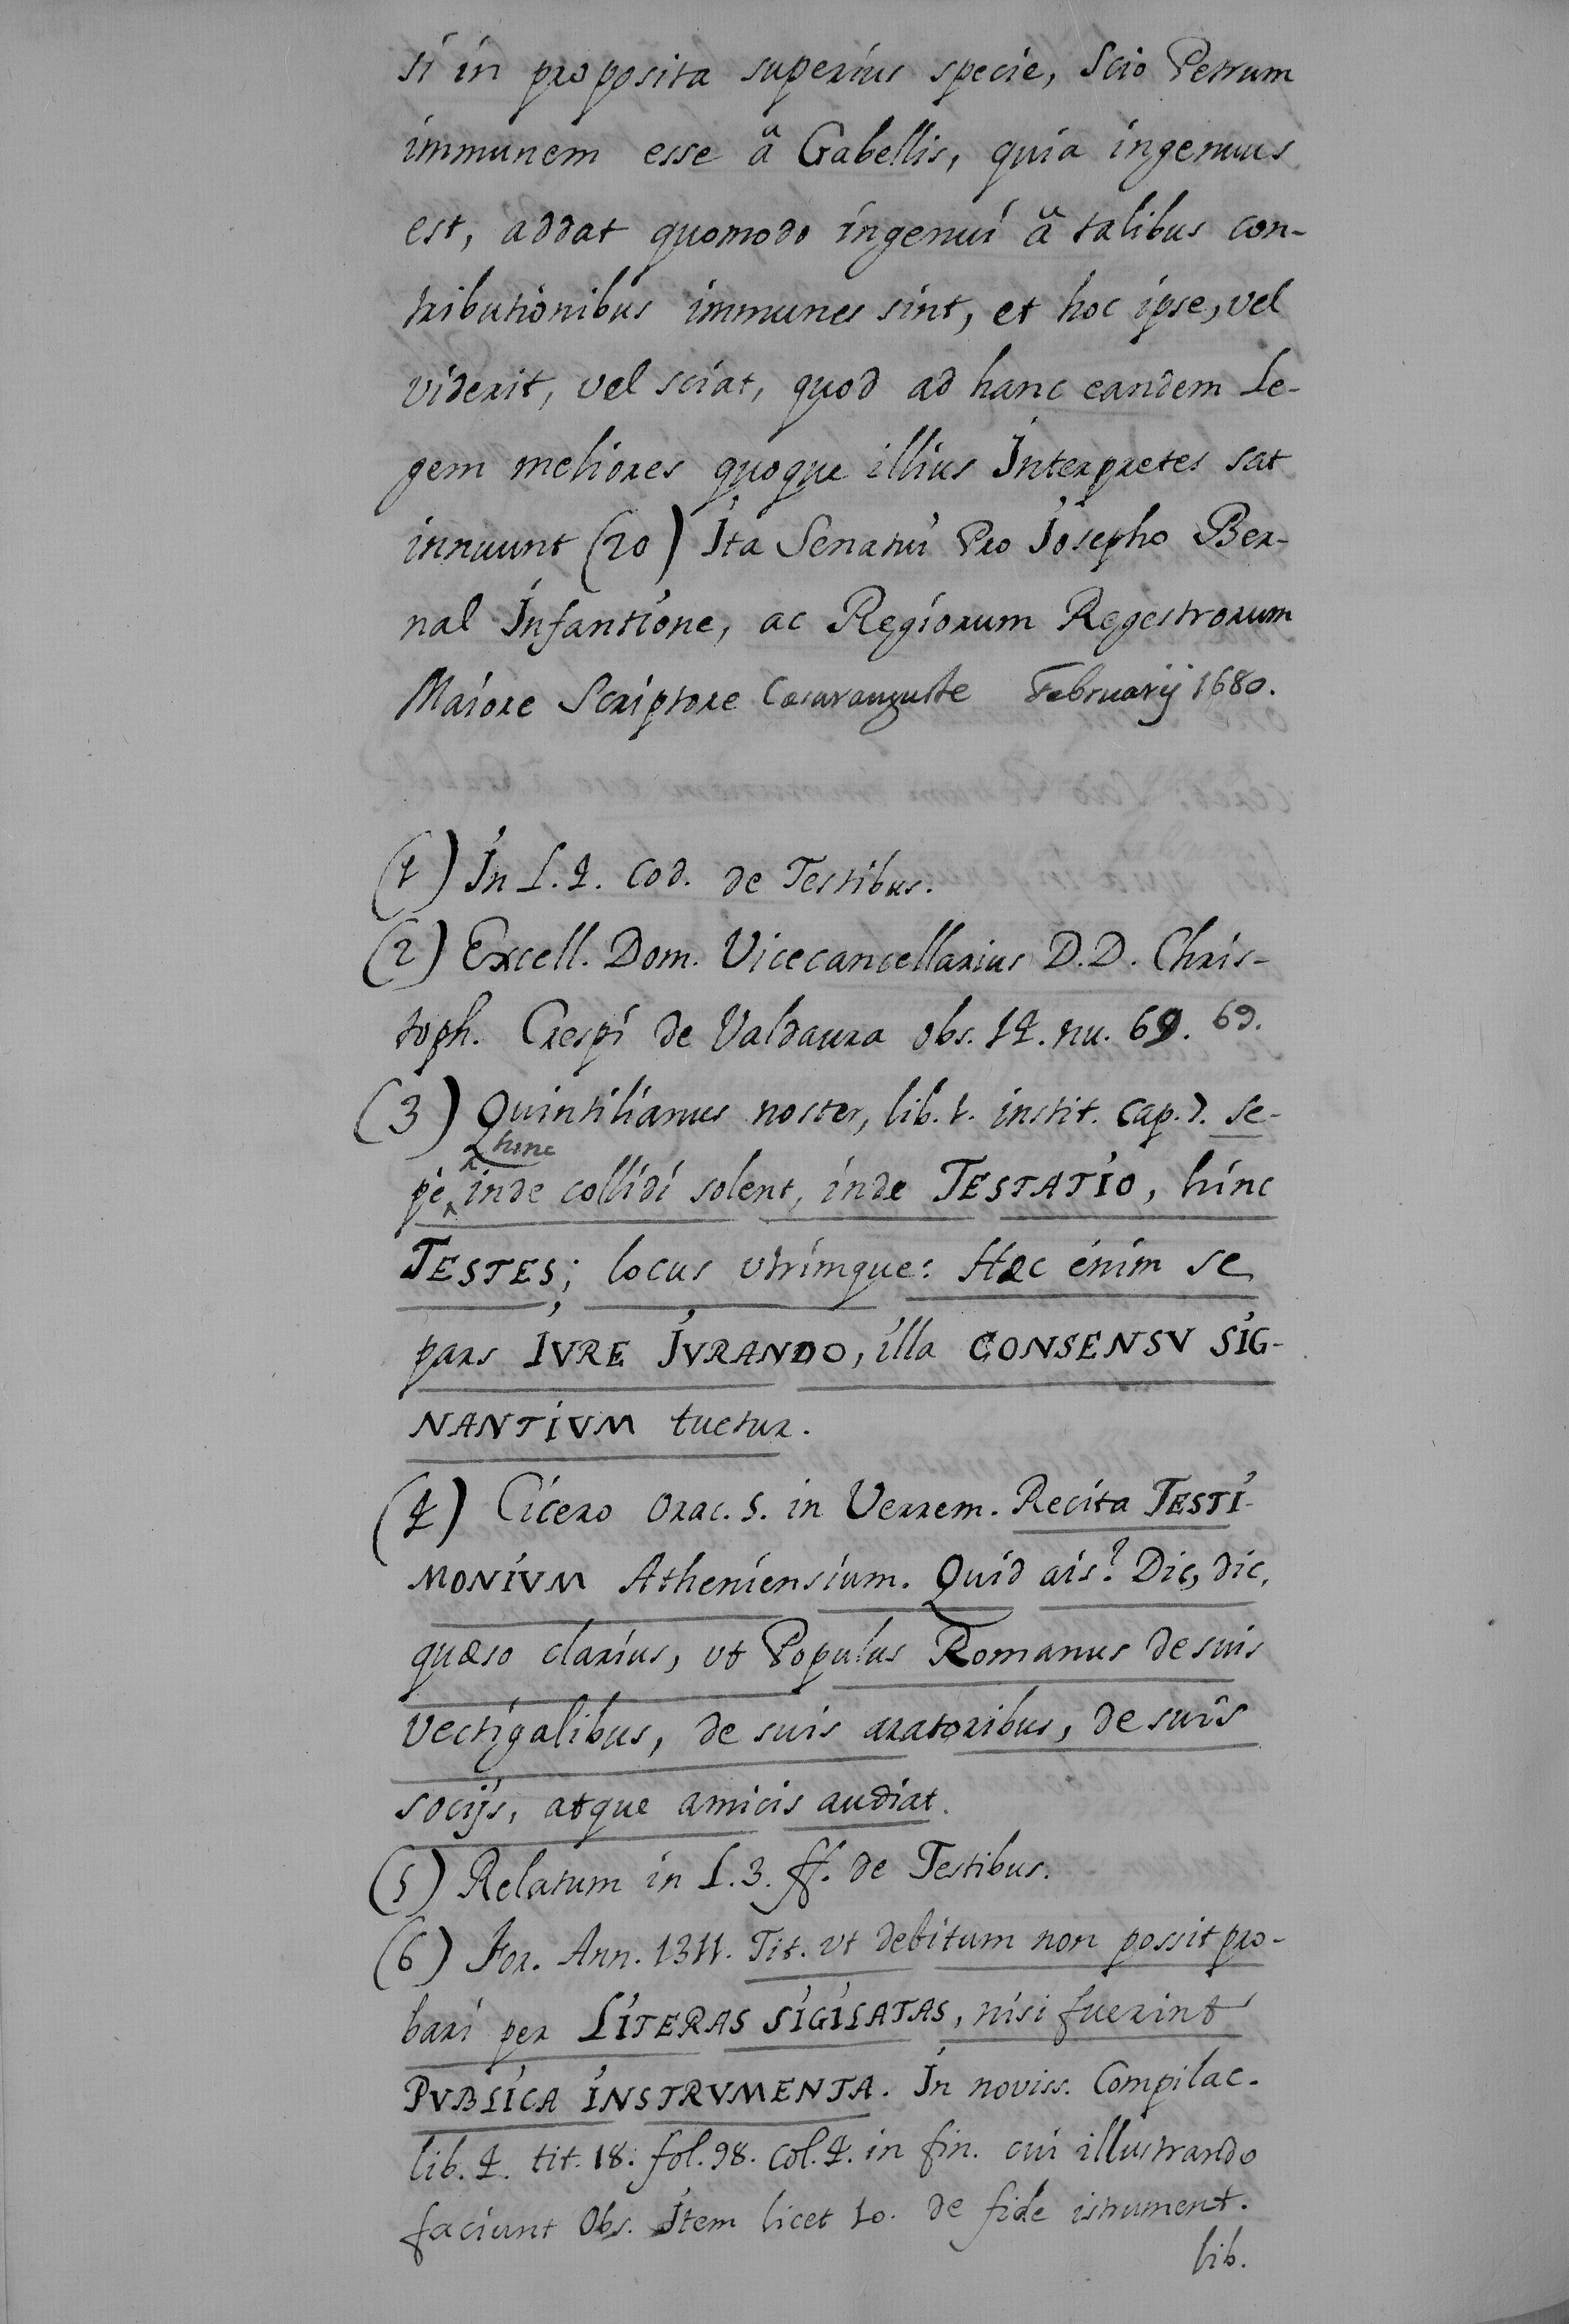 si in proposita superius specie, Scio Petrum
immunem esse â Gabellis, quia ingenuus
est, addat quomodo ingenui â talibus con-
tributionibus immunes sint, et hoc ipse, vel
viderit, vel sciat, quod ad hanc eandem Le-
gem meliores quoque illius Interpretes sat
innuunt (20) Ita Senatui Pro Josepho Ber-
nal Infantione, ac Regiorum Regestrorum
Maiore Scriptore Cæsarauguste Februarij 1680.
(1) In L. 4. Cod. de Testibus.
(2) Excell. Dom. Vicecancellarius D.D. Chris-
toph. Crespi de Valdaura obs. 14. nu. 69. 69.
(3) Quintilianus noster, lib. 1. instit. cap. 7. se-
hinc
pè inde collidi solent, inde TESTATIO, hinc
TESTES; locus utrimque: Hæc enim se
pars IVRE JVRANDO, illa CONSENSV SIG-
NANTIVM tuetur.
(4) Cicero Orac. 5. in Verrem. Recita TESTI-
MONIVM Atheniensium. Quid ais? Dic, dic,
quæso clarius, vt Populus Romanus de suis
vectigalibus, de suis aratoribus, de suis
socijs, atque amicis audiat.
(5) Relatum in L. 3. ff. de Testibus.
(6) For. Ann. 1311. Tit. vt debitum non possit pro-
bari per LITERAS SIGILATAS, nisi fuerint
PVBLICA INSTRVMENTA. In noviss. Compilac.
lib. 4. tit. 18. fol. 98. col. 4. in fin. cui illustrando
faciunt Obs. Item licet 10. de fide istrument.
lib.